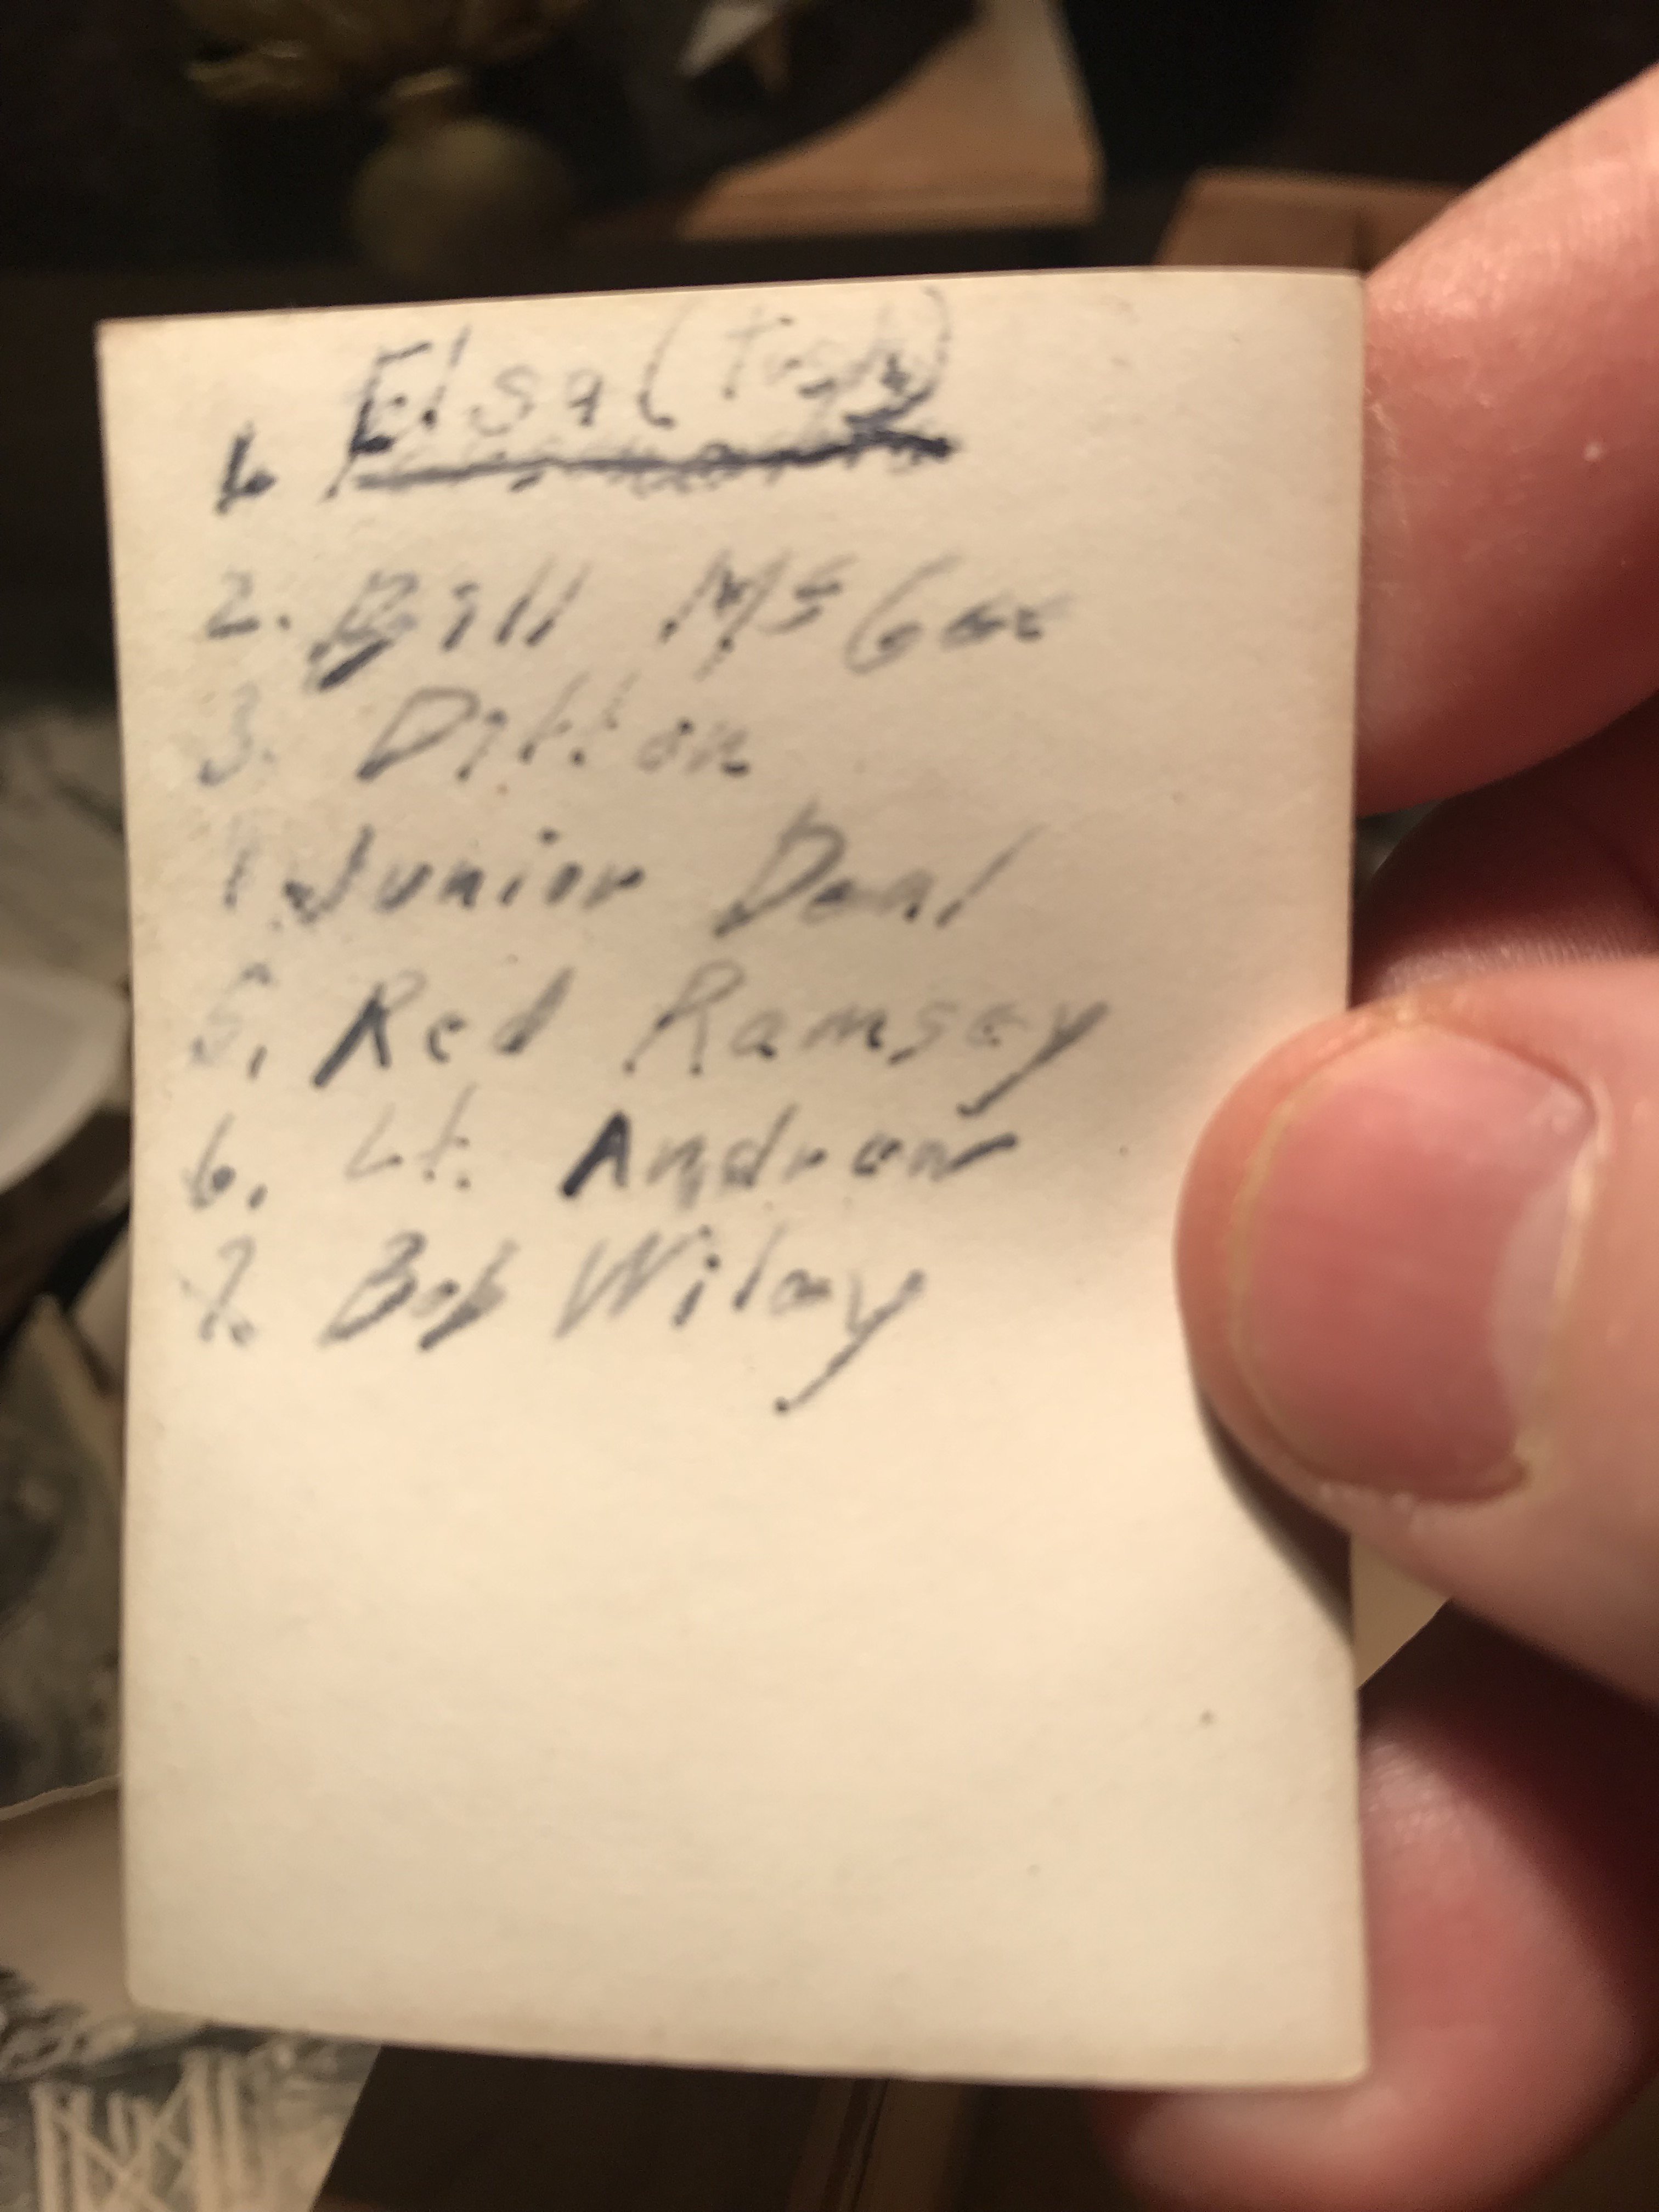 1. Elsa (
2. Bill McGee
3. Ditton
4. Junior Deal
5. Red Ramsey
6. Lt. Andrew
7. Bob Wiley